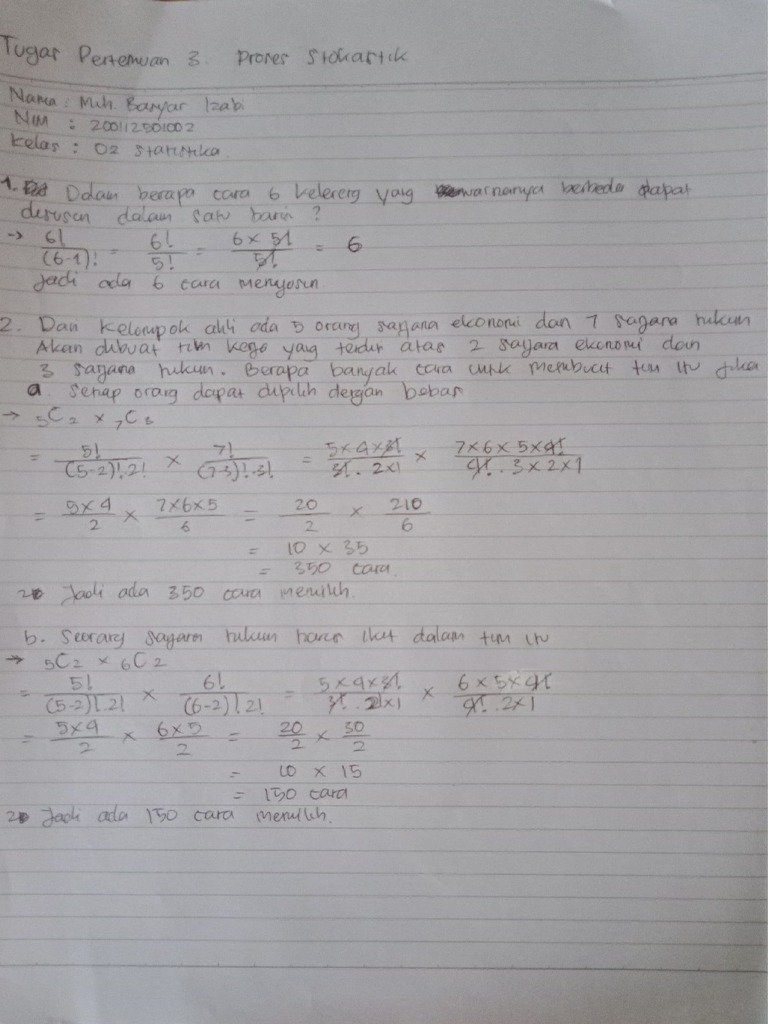 Tugas Pertemuan 3. Proses Stokastik
Nama : Muh. Banyar Izabi
NIM : 200112501002
Kelas : 02 Statistika.
1. Dalam berapa cara 6 kelereng yang warnanya berbeda dapat
disusun dalam satu baris ?
→ 6!/(6-1)! = 6!/5! = 6 × 5!/5! = 6
Jadi ada 6 cara menyusun
2. Dari Kelompok ahli ada 5 orang sarjana ekonomi dan 7 sarjana hukum
Akan dibuat tim kerja yang terdiri atas 2 sarjana ekonomi dan
3 sarjana hukum. Berapa banyak cara untuk membuat tim itu jika
a. Setiap orang dapat dipilih dengan bebas
→ 5C2 × 7C3
= 5!/(5-2)!.2! × 7!/(7-3)!.3! = 5×4×3!/3!.2×1 × 7×6×5×4!/4!.3×2×1
= 5×4/2 × 7×6×5/6 = 20/2 × 210/6
= 10 × 35
= 350 cara.
Jadi ada 350 cara memilih.
b. Seorang sarjana hukum harus ikut dalam tim itu
→ 5C2 × 6C2
= 5!/(5-2)!.2! × 6!/(6-2)!.2! = 5×4×3!/3!.2×1 × 6×5×4!/4!.2×1
= 5×4/2 × 6×5/2 = 20/2 × 30/2
= 10 × 15
= 150 cara
Jadi ada 150 cara memilih.